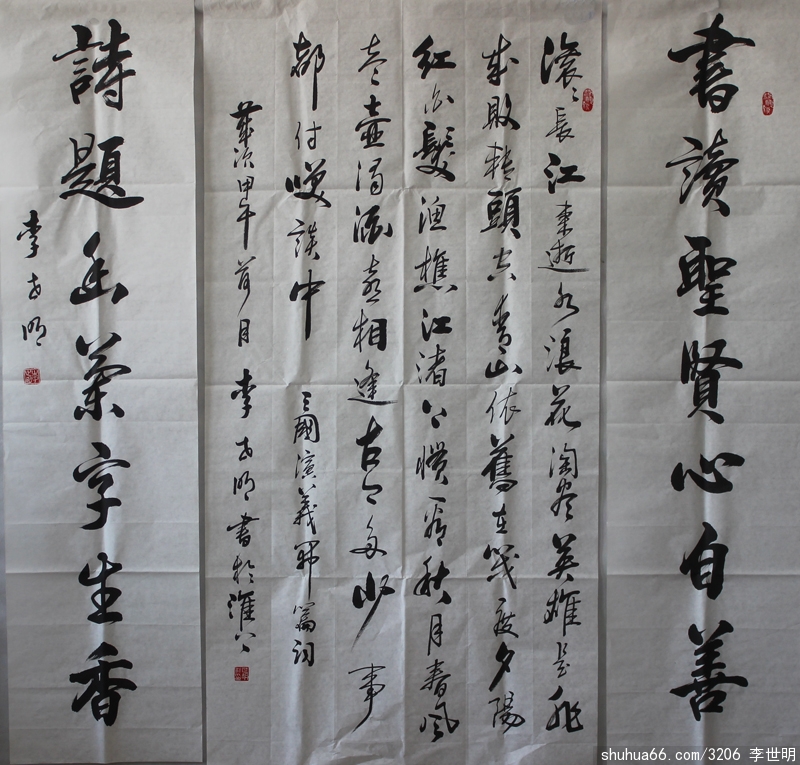 書讀聖賢心自善
滾〻長江東逝水浪花淘盡英雄是非
成敗轉頭空青山依舊在幾度夕陽
紅白髮漁樵江渚上慣看秋月春風
壹壺濁酒喜相逢古今多少事
都付咲談中 三國演義開篇詞
歲次甲午荷月李世明書於淮上
詩題幽蘭字生香
李世明
shuhua66.com/3206 李世明